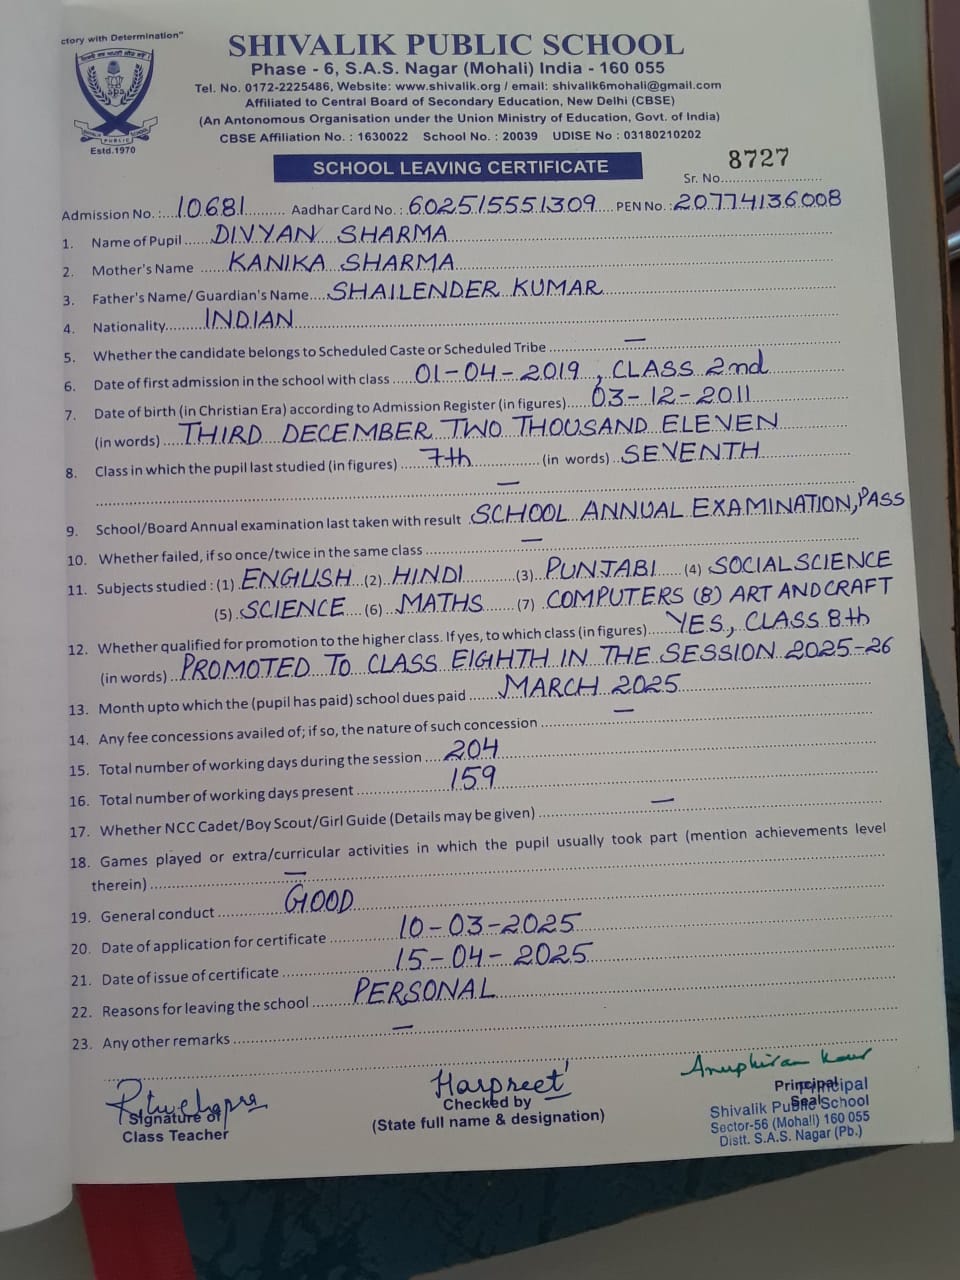 ctory with Determination"
SHIVALIK PUBLIC SCHOOL
Phase - 6, S.A.S. Nagar (Mohali) India - 160 055
Tel. No. 0172-2225486, Website: www.shivalik.org / email: shivalik6mohali@gmail.com
Affiliated to Central Board of Secondary Education, New Delhi (CBSE)
(An Antonomous Organisation under the Union Ministry of Education, Govt. of India)
CBSE Affiliation No. : 1630022 School No. : 20039 UDISE No : 03180210202
SHIVALIK PUBLIC SCHOOL
Estd.1970
SCHOOL LEAVING CERTIFICATE
Sr. No. 8727
Admission No. : 10681 Aadhar Card No. : 602515551309 PEN No. : 20774136008
1. Name of Pupil DIVYAN SHARMA
2. Mother's Name KANIKA SHARMA
3. Father's Name/ Guardian's Name SHAILENDER KUMAR
4. Nationality INDIAN
5. Whether the candidate belongs to Scheduled Caste or Scheduled Tribe —
6. Date of first admission in the school with class 01-04-2019, CLASS 2nd
7. Date of birth (in Christian Era) according to Admission Register (in figures) 03-12-2011
(in words) THIRD DECEMBER TWO THOUSAND ELEVEN
8. Class in which the pupil last studied (in figures) 7th (in words) SEVENTH
—
9. School/Board Annual examination last taken with result SCHOOL ANNUAL EXAMINATION, PASS
10. Whether failed, if so once/twice in the same class —
11. Subjects studied : (1) ENGLISH (2) HINDI (3) PUNJABI (4) SOCIAL SCIENCE
(5) SCIENCE (6) MATHS (7) COMPUTERS (8) ART AND CRAFT
12. Whether qualified for promotion to the higher class. If yes, to which class (in figures) YES, CLASS 8th
(in words) PROMOTED TO CLASS EIGHTH IN THE SESSION 2025-26
13. Month upto which the (pupil has paid) school dues paid MARCH 2025
14. Any fee concessions availed of; if so, the nature of such concession —
15. Total number of working days during the session 204
16. Total number of working days present 159
17. Whether NCC Cadet/Boy Scout/Girl Guide (Details may be given) —
18. Games played or extra/curricular activities in which the pupil usually took part (mention achievements level
therein) —
19. General conduct GOOD
20. Date of application for certificate 10-03-2025
21. Date of issue of certificate 15-04-2025
22. Reasons for leaving the school PERSONAL
23. Any other remarks —
Harpreet
Signature of
Class Teacher
Checked by
(State full name & designation)
Anupkiran Kaur
Principal
Seal
Principal
Shivalik Public School
Sector-56 (Mohali) 160 055
Distt. S.A.S. Nagar (Pb.)